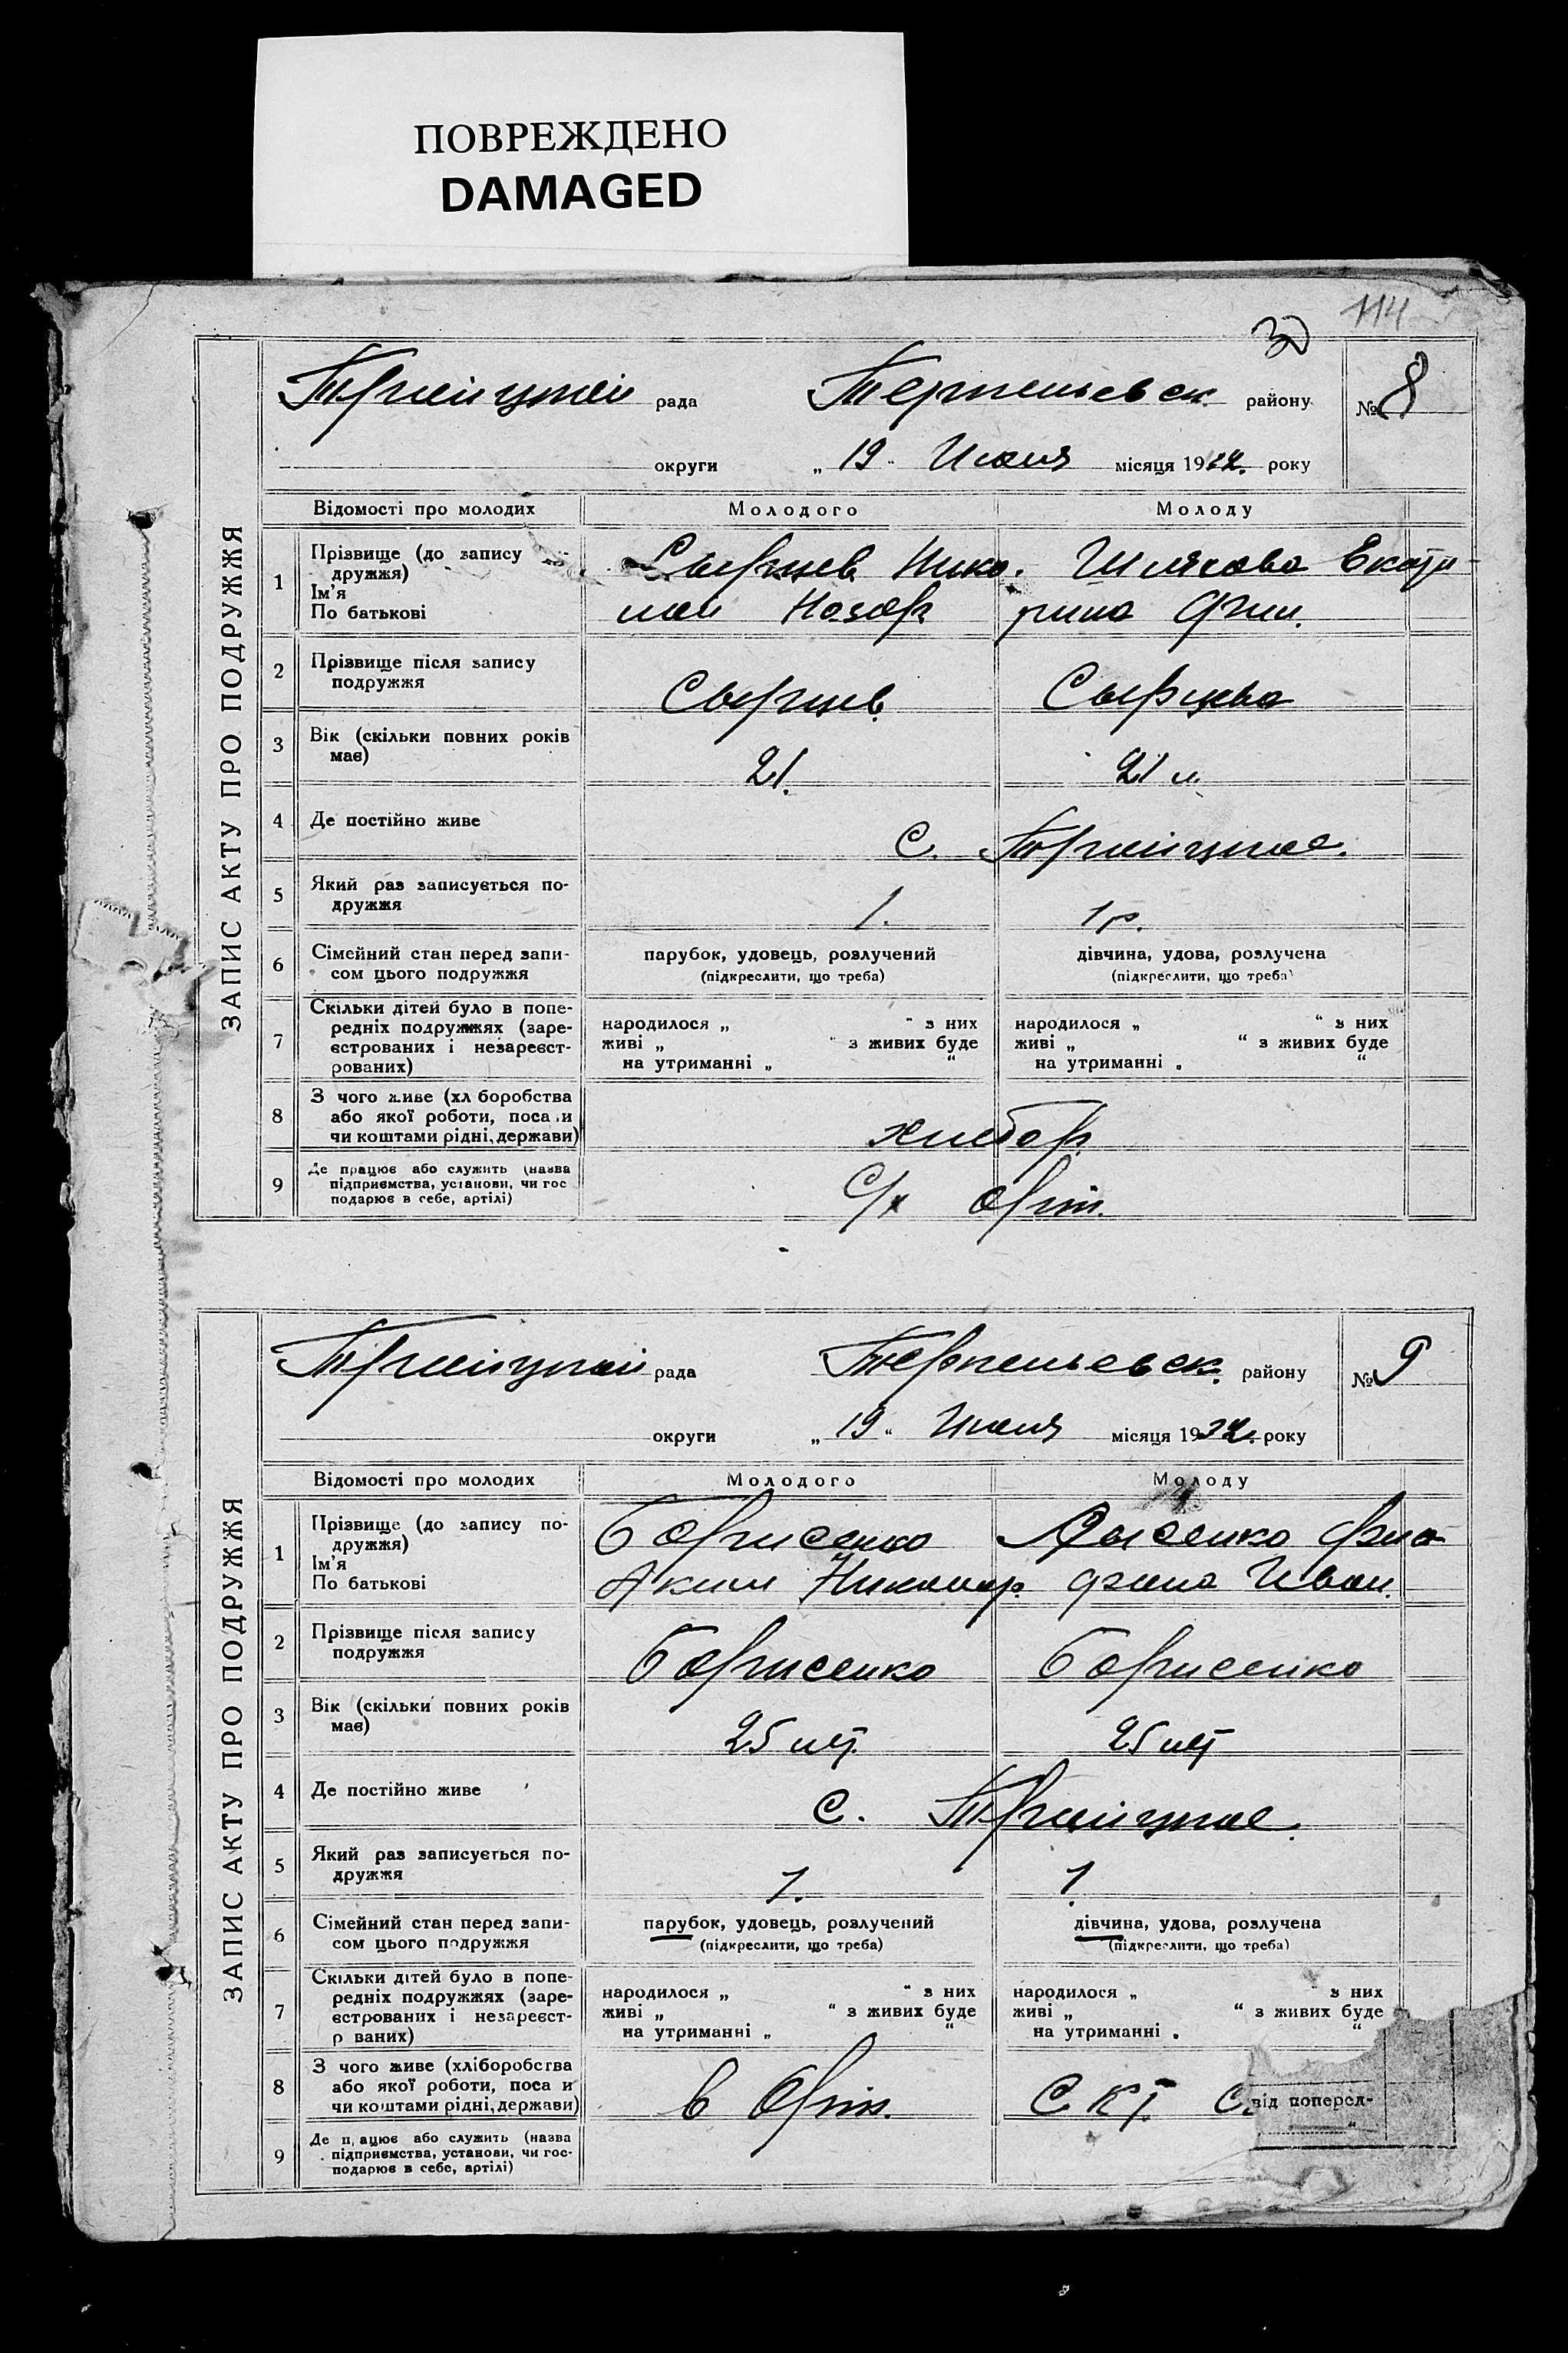 ПОВРЕЖДЕНО
DAMAGED
114
ЗАПИС АКТУ ПРО ПОДРУЖЖЯ
Троицкой рада Терпеньевск. району № 8
округи „ 19 “ Июля місяця 1932. року
Відомості про молодих Молодого Молоду
1 Прізвище (до запису
дружжя)
Ім'я
По батькові
Сырцев Нико- Шляхова Екате-
лай Назар. рина Фил.
2 Прізвище після запису
подружжя
Сырцев Сырцева
3 Вік (скільки повних років
має)
21. 21 л
4 Де постійно живе
С. Троицкое.
5 Який раз записується по-
дружжя
1. 1 р.
6 Сімейний стан перед запи-
сом цього подружжя
парубок, удовець, розлучений дівчина, удова, розлучена
(підкреслити, що треба) (підкреслити, що треба)
7 Скільки дітей було в попе-
редніх подружжях (заре-
єстрованих і незареєст-
рованих)
народилося „ “ з них народилося „ “ з них
живі „ “ з живих буде живі „ “ з живих буде
на утриманні „ “ на утриманні „ “
8 З чого живе (хл боробства
або якої роботи, поса и
чи коштами рідні, держави)
хлебор.
9 Де працює або служить (назва
підприємства, установи, чи гос
подарює в себе, артілі)
С/х арт.
ЗАПИС АКТУ ПРО ПОДРУЖЖЯ
Троицкой рада Терпеньевск. району № 9
округи „ 19 “ Июля місяця 1932. року
Відомості про молодих Молодого Молоду
1 Прізвище (до запису по-
дружжя)
Ім'я
По батькові
Борисенко Лысенко
Аким Иван.
2 Прізвище після запису
подружжя
Борисенко Борисенко
3 Вік (скільки повних років
має)
25 лет. 25 лет
4 Де постійно живе
С. Троицкое.
5 Який раз записується по-
дружжя
1. 1.
6 Сімейний стан перед запи-
сом цього подружжя
парубок, удовець, розлучений дівчина, удова, розлучена
(підкреслити, що треба) (підкреслити, що треба)
7 Скільки дітей було в попе-
редніх подружжях (заре-
єстрованих і незареєст-
р ваних)
народилося „ “ з них народилося „ “ з них
живі „ “ з живих буде живі „ “ з живих буде
на утриманні „ “ на утриманні „ “
8 З чого живе (хліборобства
або якої роботи, поса и
чи коштами рідні, держави)
в Арт. С.
від поперед-
9 Де п ацює або служить (назва
підприємства, установи, чи гос-
подарює в себе, артілі)